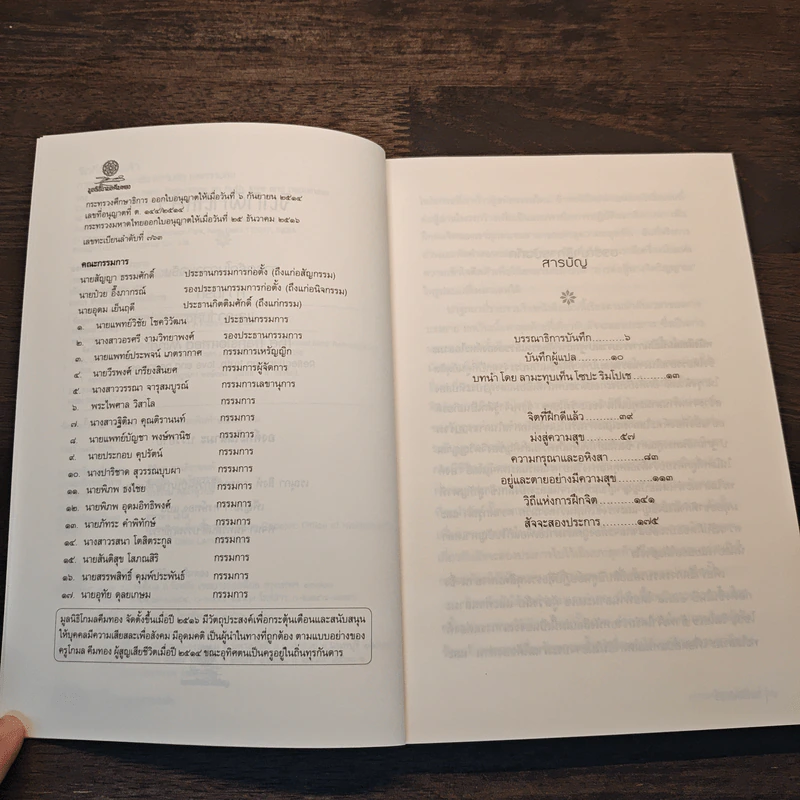 มูลนิธิโกมลคีมทอง
กระทรวงศึกษาธิการ ออกใบอนุญาตให้เมื่อวันที่ ๖ กันยายน ๒๕๑๔
เลขที่อนุญาตที่ ต. ๑๔๔/๒๕๑๔
กระทรวงมหาดไทยออกใบอนุญาตให้เมื่อวันที่ ๒๕ ธันวาคม ๒๕๑๖
เลขทะเบียนลำดับที่ ๗๖๓
คณะกรรมการ
นายสัญญา ธรรมศักดิ์ ประธานกรรมการก่อตั้ง (ถึงแก่อสัญกรรม)
นายป๋วย อึ๊งภากรณ์ รองประธานกรรมการก่อตั้ง (ถึงแก่อนิจกรรม)
นายอุดม เย็นฤดี ประธานกิตติมศักดิ์ (ถึงแก่กรรม)
๑. นายแพทย์วิชัย โชควิวัฒน ประธานกรรมการ
๒. นางสาวอรศรี งามวิทยาพงศ์ รองประธานกรรมการ
๓. นายแพทย์ประพจน์ เภตรากาศ กรรมการเหรัญญิก
๔. นายวีรพงศ์ เกรียงสินยศ กรรมการผู้จัดการ
๕. นางสาววรรณา จารุสมบูรณ์ กรรมการเลขานุการ
๖. พระไพศาล วิสาโล กรรมการ
๗. นางสาวฐิติมา คุณติรานนท์ กรรมการ
๘. นายแพทย์บัญชา พงษ์พานิช กรรมการ
๙. นายประกอบ คุปรัตน์ กรรมการ
๑๐. นางปาริชาด สุวรรณบุบผา กรรมการ
๑๑. นายพิภพ ธงไชย กรรมการ
๑๒. นายพิภพ อุดมอิทธิพงศ์ กรรมการ
๑๓. นายภัทระ คำพิทักษ์ กรรมการ
๑๔. นางสาวรสนา โตสิตระกูล กรรมการ
๑๕. นายสันติสุข โสภณสิริ กรรมการ
๑๖. นายสรรพสิทธิ์ คุมพ์ประพันธ์ กรรมการ
๑๗. นายอุทัย ดุลยเกษม กรรมการ
มูลนิธิโกมลคีมทอง จัดตั้งขึ้นเมื่อปี ๒๕๑๖ มีวัตถุประสงค์เพื่อกระตุ้นเตือนและสนับสนุน
ให้บุคคลมีความเสียสละเพื่อสังคม มีอุดมคติ เป็นผู้นำในทางที่ถูกต้อง ตามแบบอย่างของ
ครูโกมล คีมทอง ผู้สูญเสียชีวิตเมื่อปี ๒๕๑๔ ขณะอุทิศตนเป็นครูอยู่ในถิ่นทุรกันดาร
สารบัญ
บรรณาธิการบันทึก..........๖
บันทึกผู้แปล..........๑๐
บทนำ โดย ลามะทุบเท็น โซปะ ริมโปเช..........๑๓
จิตที่ฝึกดีแล้ว..........๓๙
มุ่งสู่ความสุข..........๕๗
ความกรุณาและอหิงสา..........๘๓
อยู่และตายอย่างมีความสุข..........๑๑๓
วิถีแห่งการฝึกจิต..........๑๔๑
สัจจะสองประการ..........๑๗๕